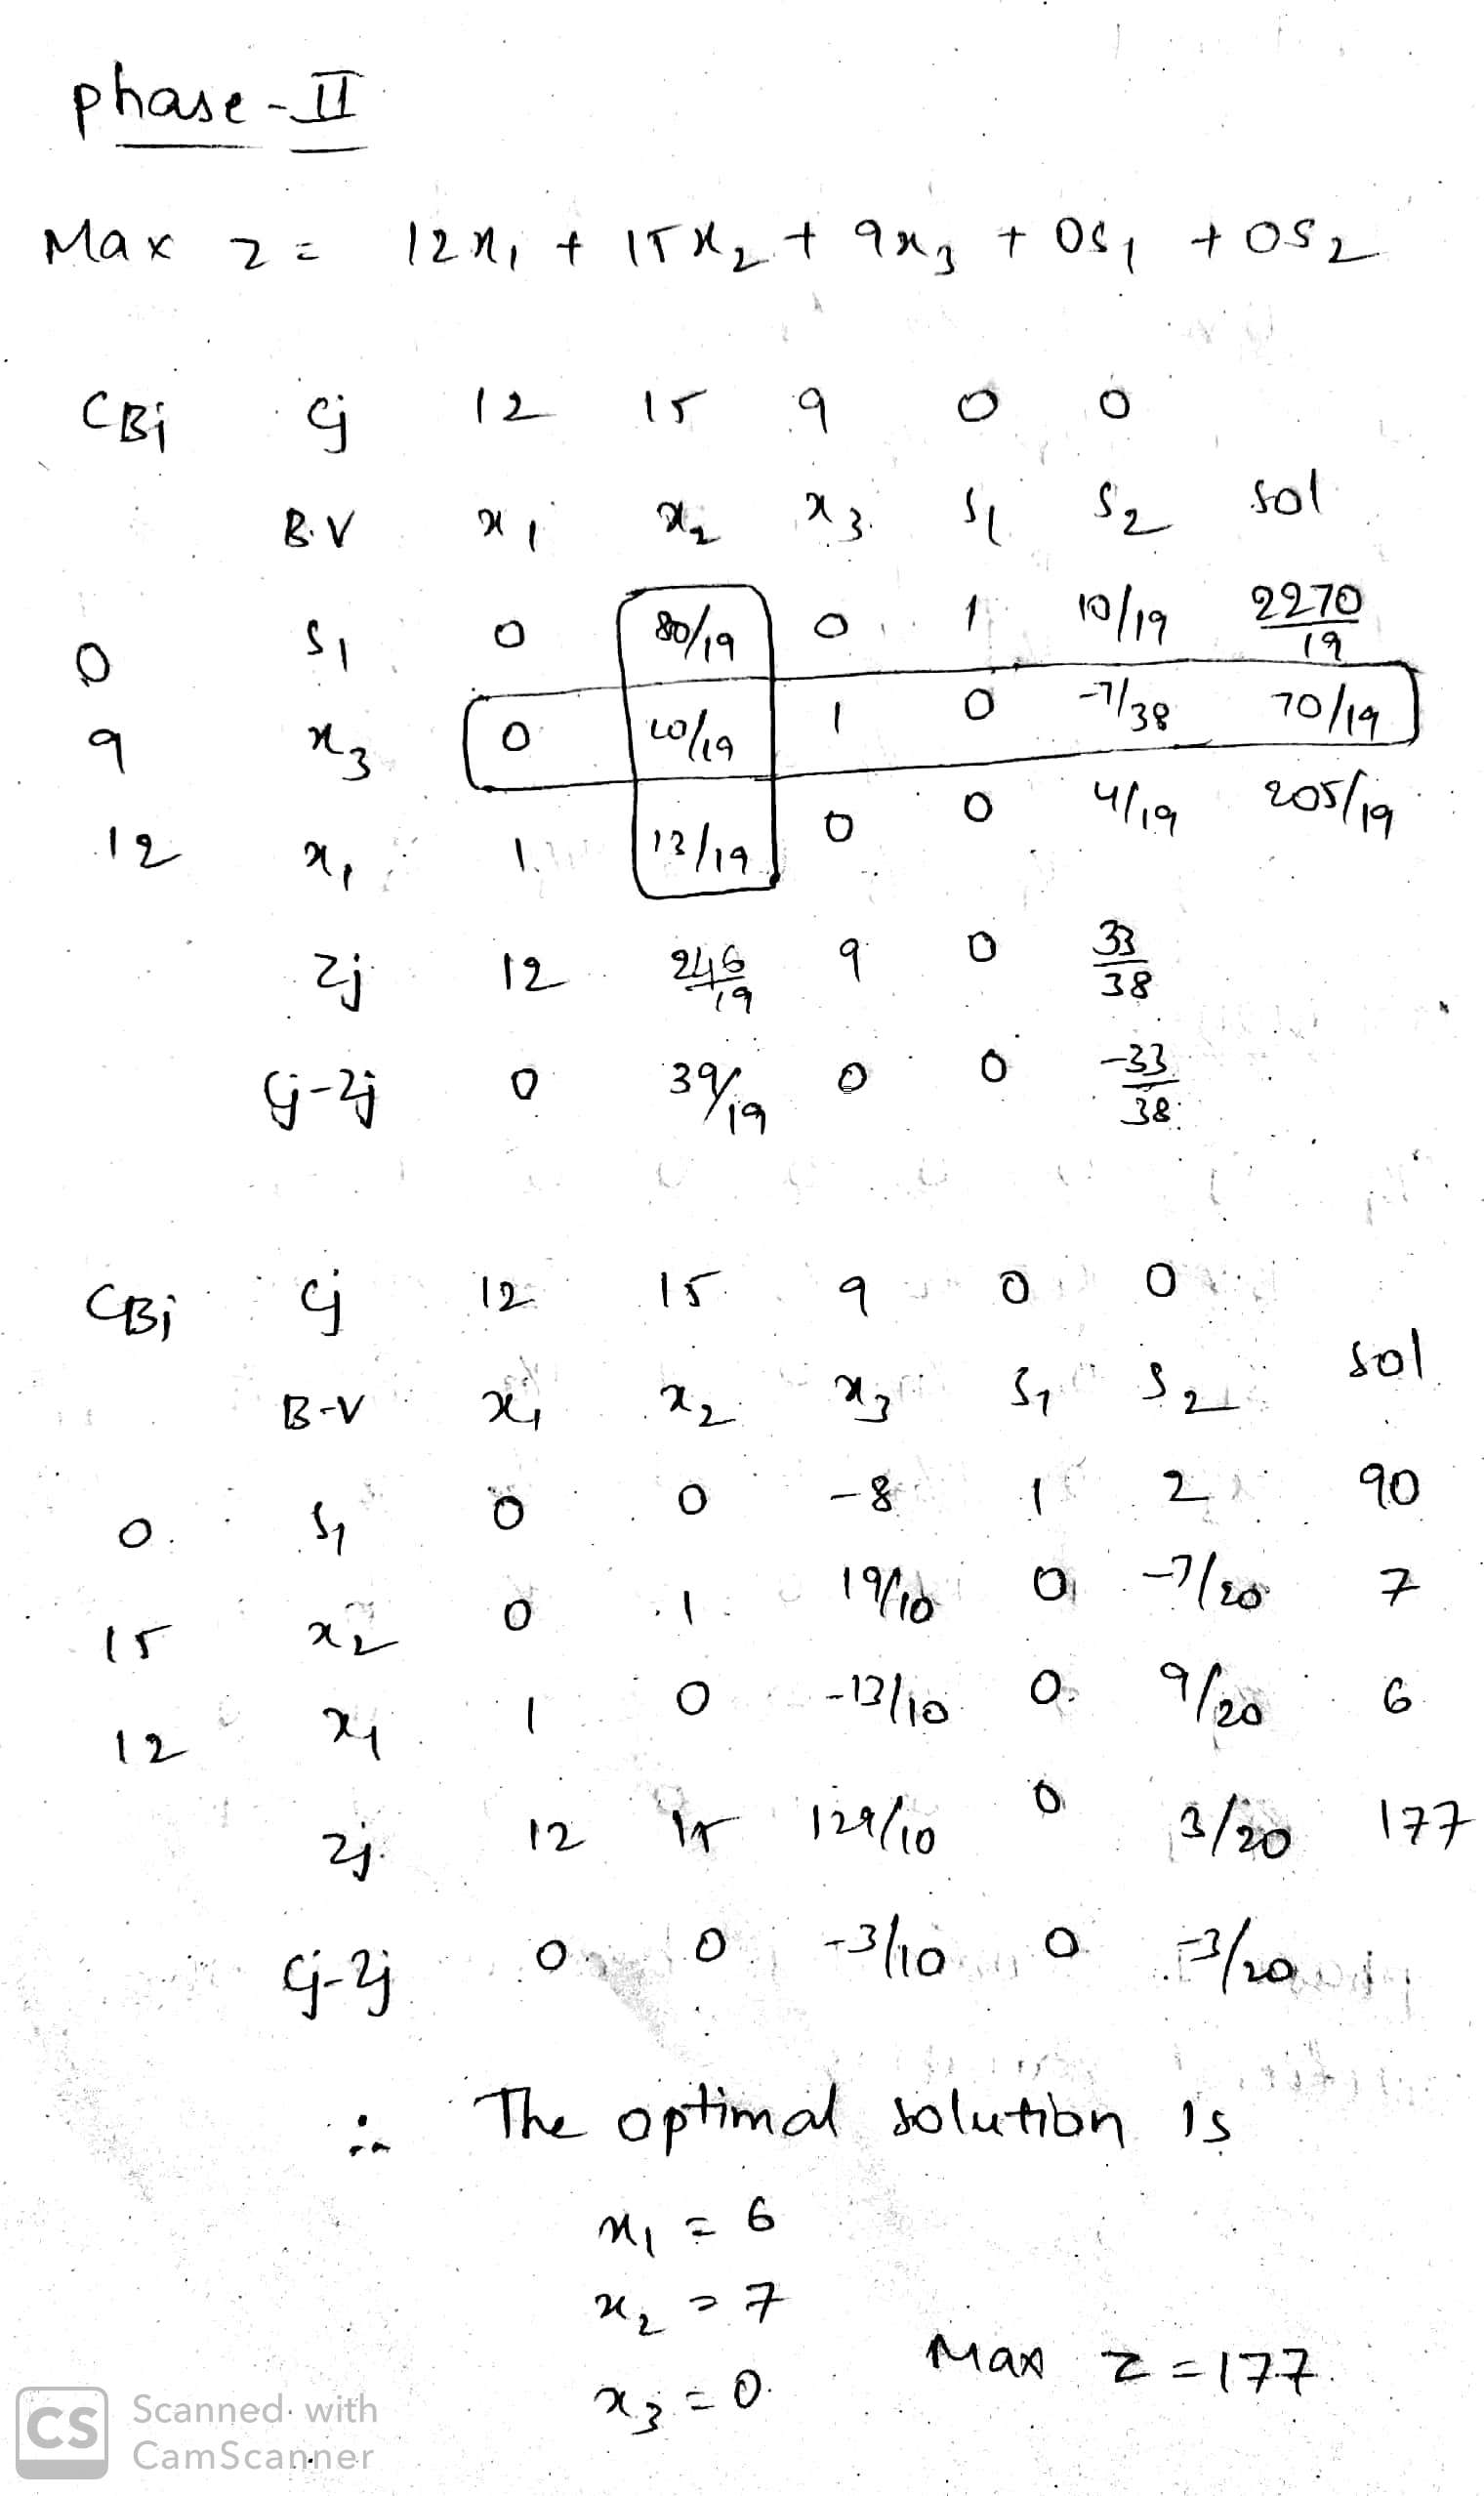 phase-II
Max z = 12x₁ + 15x₂ + 9x₃ + 0s₁ + 0s₂
CBi Cj 12 15 9 0 0
B.V x₁ x₂ x₃ s₁ s₂ sol
0 s₁ 0 80/19 0 1 10/19 2270/19
9 x₃ 0 10/19 1 0 -7/38 70/19
12 x₁ 1 13/19 0 0 4/19 205/19
Zj 12 246/19 9 0 33/38
Cj-Zj 0 39/19 0 0 -33/38
CBi Cj 12 15 9 0 0
B-V x₁ x₂ x₃ s₁ s₂ sol
0 s₁ 0 0 -8 1 2 90
15 x₂ 0 1 19/10 0 -7/20 7
12 x₁ 1 0 -13/10 0 9/20 6
Zj 12 15 129/10 0 3/20 177
Cj-Zj 0 0 -3/10 0 -3/20
∴ The optimal solution is
x₁ = 6
x₂ = 7
x₃ = 0. Max z = 177.
CS Scanned with
CamScanner